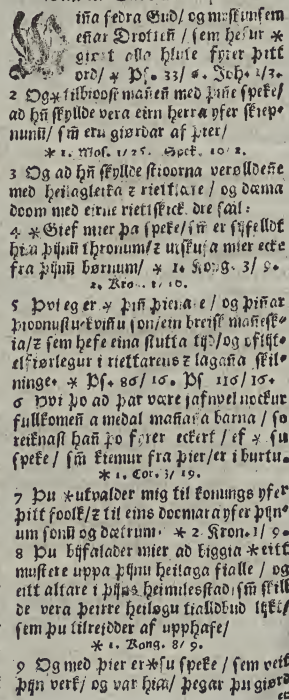 Miña fedra Gud/ og miskunsem
eñar Drotteñ/ sem hefur *
giort alla hlute fyrer þitt
ord/ * Ps. 33/ 6. Joh. 1/3.
2 Og * tilbioost mañeñ med þiñe speke/
ad hñ skyllde vera eirn herra yfer skiep-
nunū/ sm̄ eru giørdar af þier/
* 1. Mos. 1/25. Spek. 10/2.
3 Og ad hñ skyllde stioorna verølldeñe
med heilagleika z rietlære/ og dæma
doom med eirne rietskick.
4 * Gief mier þa speke/ sm̄ er sijfelldt
hia þijnū thronum/ z utskufa mier ecke
fra þijnū børnum/ * 1. Kong. 3/ 9.
2. Kron. 1/ 10.
5 Þvi eg er * þiñ þienare/ og þiñar
þioonustukvinnu son/ ein breisk mañesk-
ia/ z sem hefe eina stutta tijd/ og oflijt-
elfiørlegur i riettarens z lagaña skil-
ninge. * Ps. 86/ 16. Ps 116/ 16.
6 Þvi þo ad þar være jafnvel nockur
fullkomeñ a medal mañaña barna/ so
reiknast hañ þo fyrer eckert/ ef * su
speke/ sm̄ kiemur fra þier/ er i burtu.
* 1. Cor. 3/ 19.
7 Þu * utvalder mig til konungs yfer
þitt foolk/ z til eins doomara yfer þijn-
um sonū og dætrum. * 2 Kron. 1/ 9.
8 Þu bijfalader mier ad biggia * eitt
mustere uppa þijnu heilaga fialle/ og
eitt altare i þijns heimilesstad/ sm̄ skill-
de vera þeirre heiløgu tialldbud lijkt/
sem þu tilreidder af upphafe/
* 1. Kong. 8/ 9.
9 Og med þier er * su speke/ sem veit
þijn verk/ og var hia/ þegar þu giørd